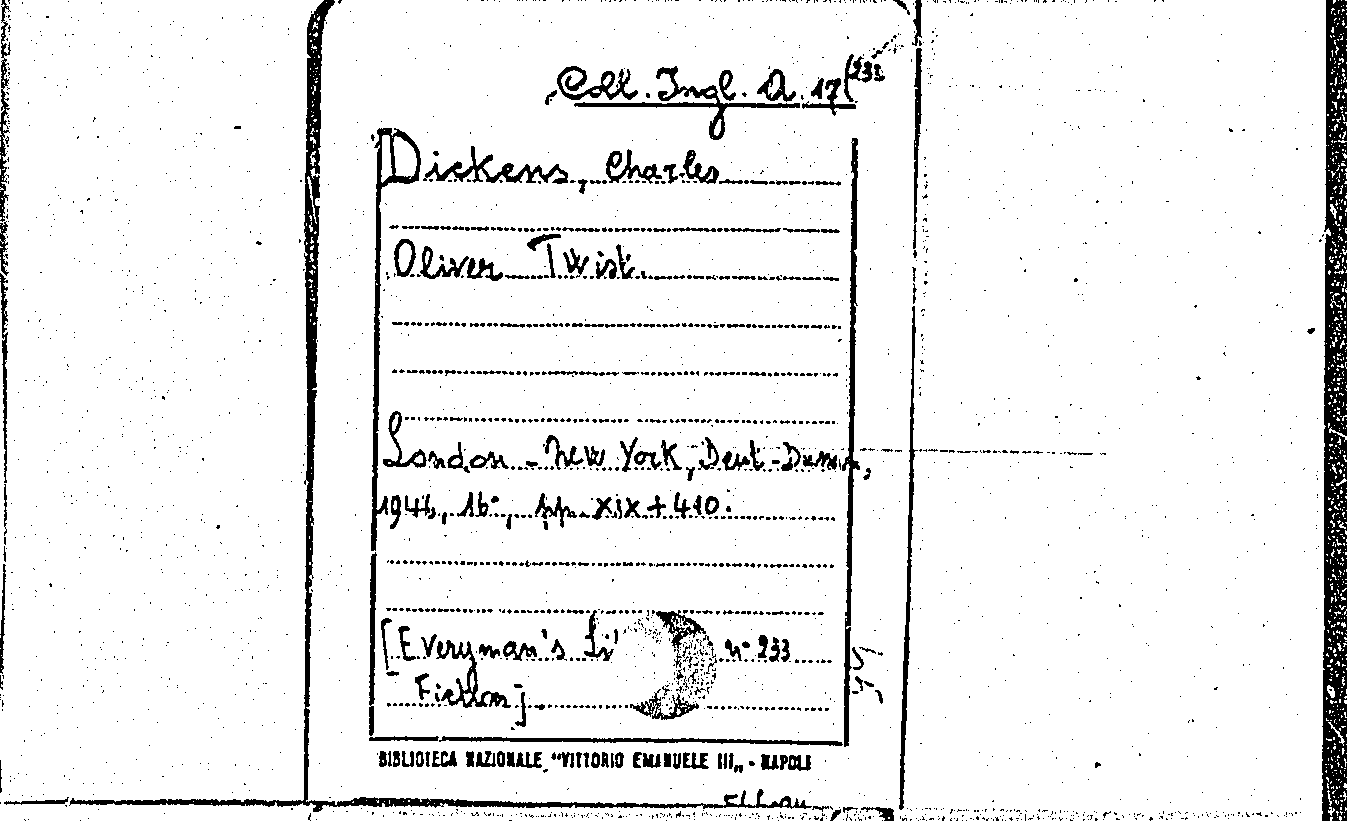 Coll. Ingl. A. 17(233
Dickens, Charles
Oliver Twist.
London - New York, Dent-Dutton,
, 16°, pp. XIX + 410.
[Everyman's Li n° 233
Fiction].
BIBLIOTECA NAZIONALE "VITTORIO EMANUELE III„ - NAPOLI